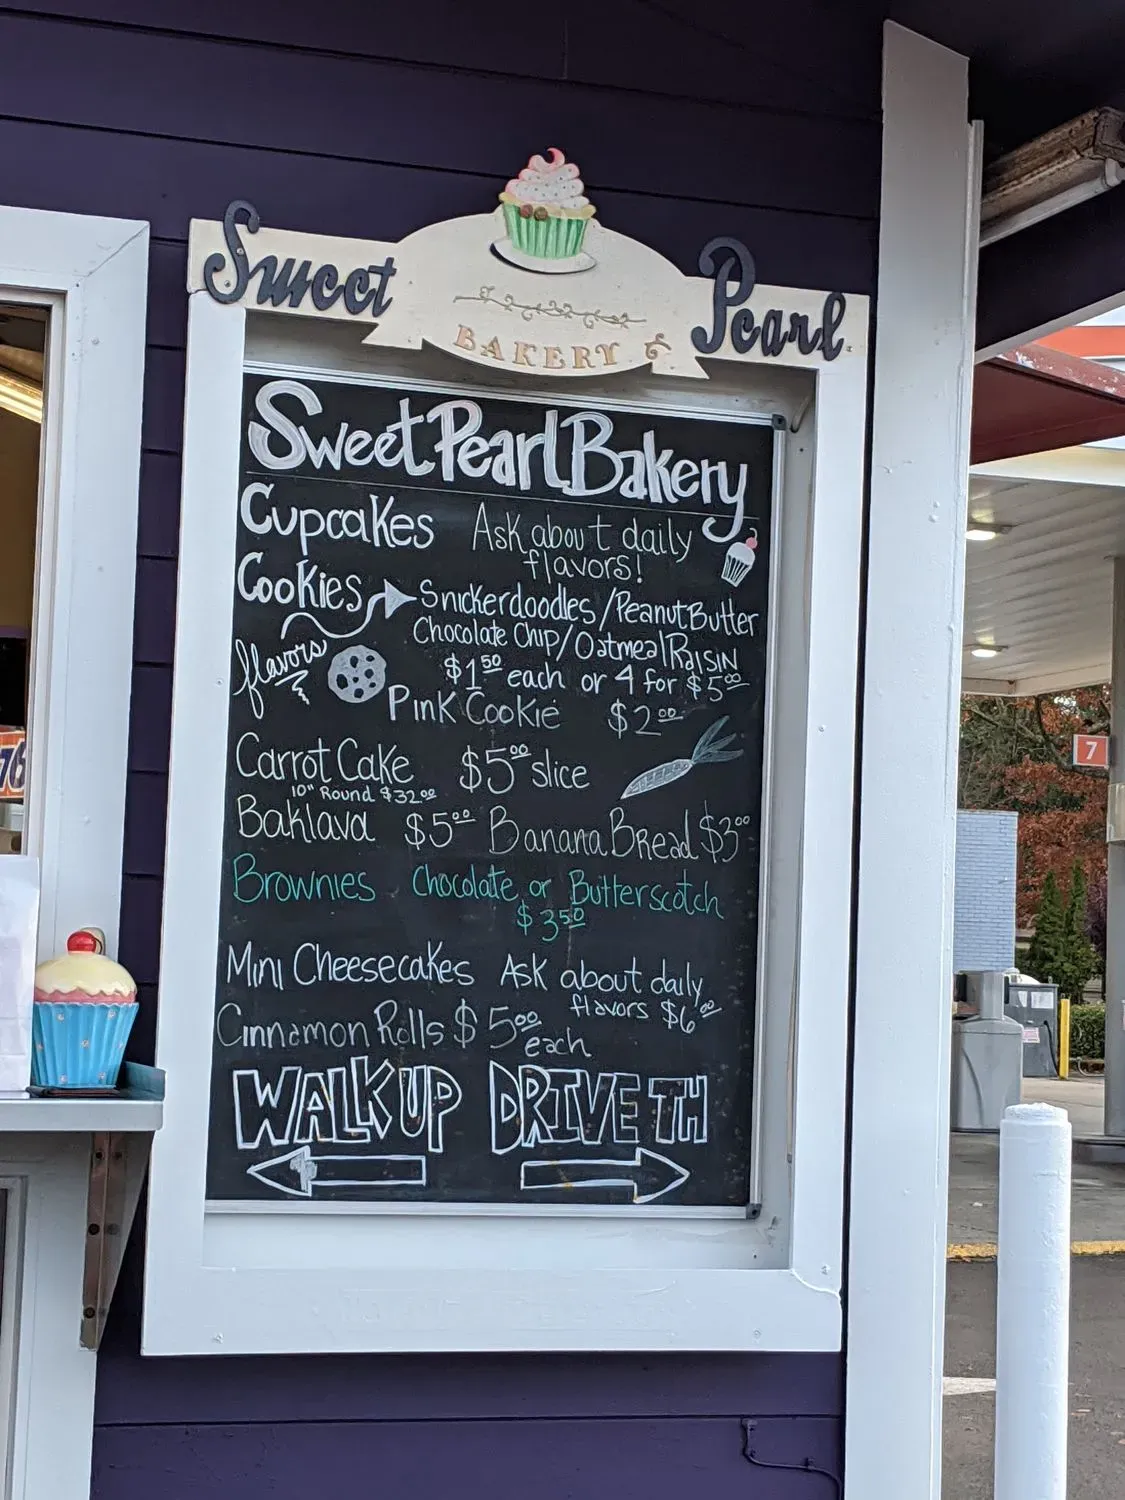 Sweet Pearl
BAKERY
Sweet Pearl Bakery
Cupcakes Ask about daily
flavors!
Cookies Snickerdoodles/Peanut Butter
flavors Chocolate Chip/Oatmeal Raisin
$1.50 each or 4 for $5.00
Pink Cookie $2.00
Carrot Cake $5.00 slice
10" Round $32.00
Baklava $5.00 Banana Bread $3.00
Brownies Chocolate or Butterscotch
$3.50
Mini Cheesecakes Ask about daily
flavors $6.00
Cinnamon Rolls $5.00
each
WALK UP DRIVE TH
76
7